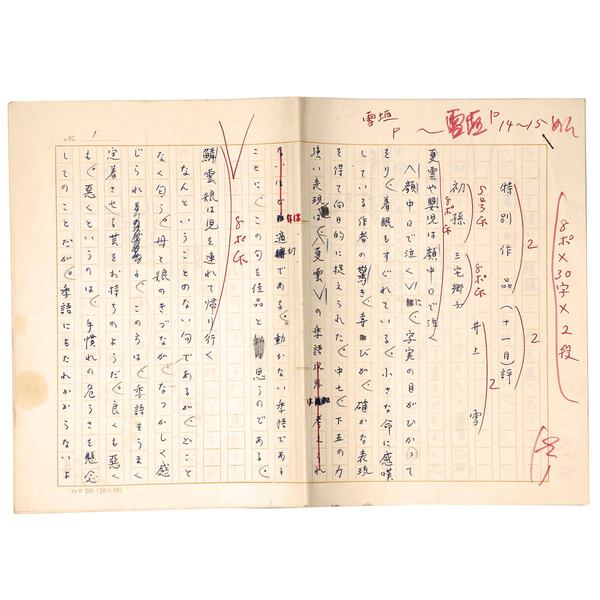 雪垣
P
～雪垣P14～15めん
8ポ×30字×2段
特別作品(十一月)評
2
2
井上雪
2
初孫 三宅郷子
8ポ
夏雲や嬰児は顔中口で泣く
〈顔中口で泣く〉に、写実の目がひかって
をり、着眼もすぐれている。小さな命に感嘆
している作者の驚き、喜びが、確かな表現
を得て向日的に捉えられた。中七、下五の力
強い表現は、〈夏雲〉の季語
適切である。動かない季語であり
ことに、この句を佳品と思うのである。
鱗雲娘は児を連れて帰り行く
8ポ
なんということのない句であるが、どこと
なく匂う。母と娘のきづながなつかしく感
じられる。この方は、季語をうまく
定着させる芸をお持ちのようだ。良くも悪く
も。悪くというのは、手慣れの危うさを懸念
してのことだが。季語にもたれかからないよ
No. 1